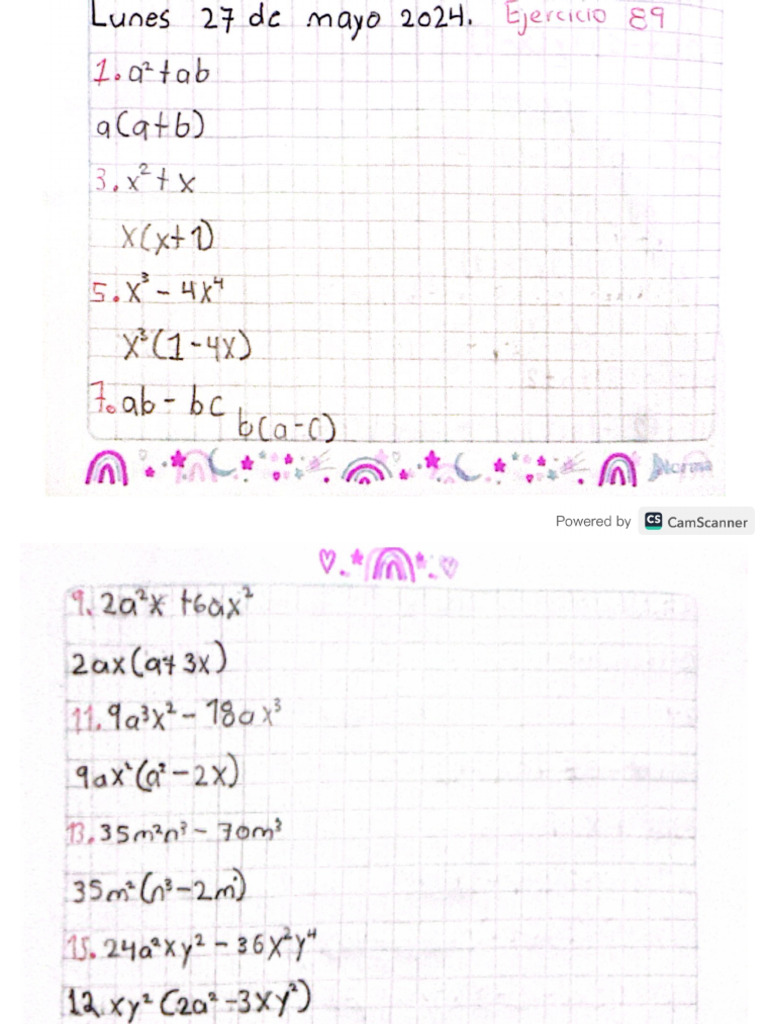 Lunes 27 de mayo 2024. Ejercicio 89
1. a²+ab
a(a+b)
3. x²+x
x(x+1)
5. x³ - 4x⁴
x³(1-4x)
7. ab - bc
b(a-c)
Norma
Powered by CS CamScanner
9. 2a²x +6ax²
2ax(a+3x)
11. 9a³x² - 18ax³
9ax²(a²-2x)
13. 35m²n³ - 70m³
35m²(n³-2m)
15. 24a²xy² - 36x²y⁴
12xy²(2a²-3xy²)